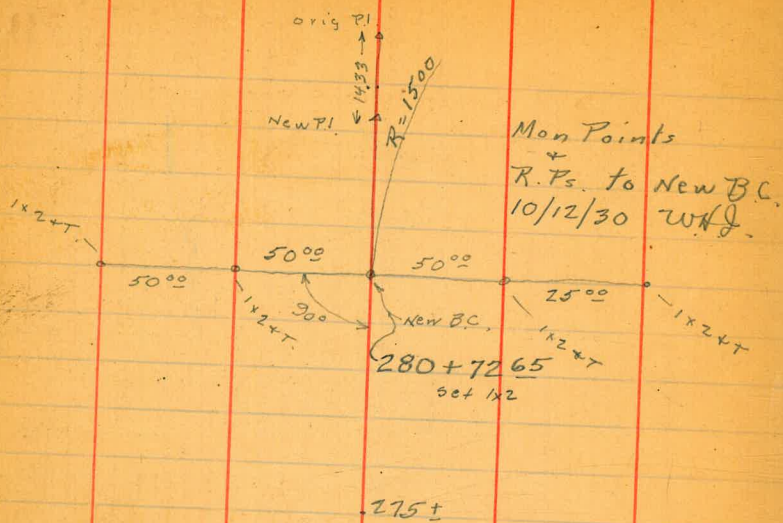 orig P.I.
1433
New P.I.
R=1500
Mon Points
+
R.Ps. to New B.C.
10/12/30 WHJ.
1x2+T.
50 00
50 00
50 00
25 00
1x2+T.
90°
New B.C.
1x2+T
1x2+T
280+72 65
set 1x2
275±